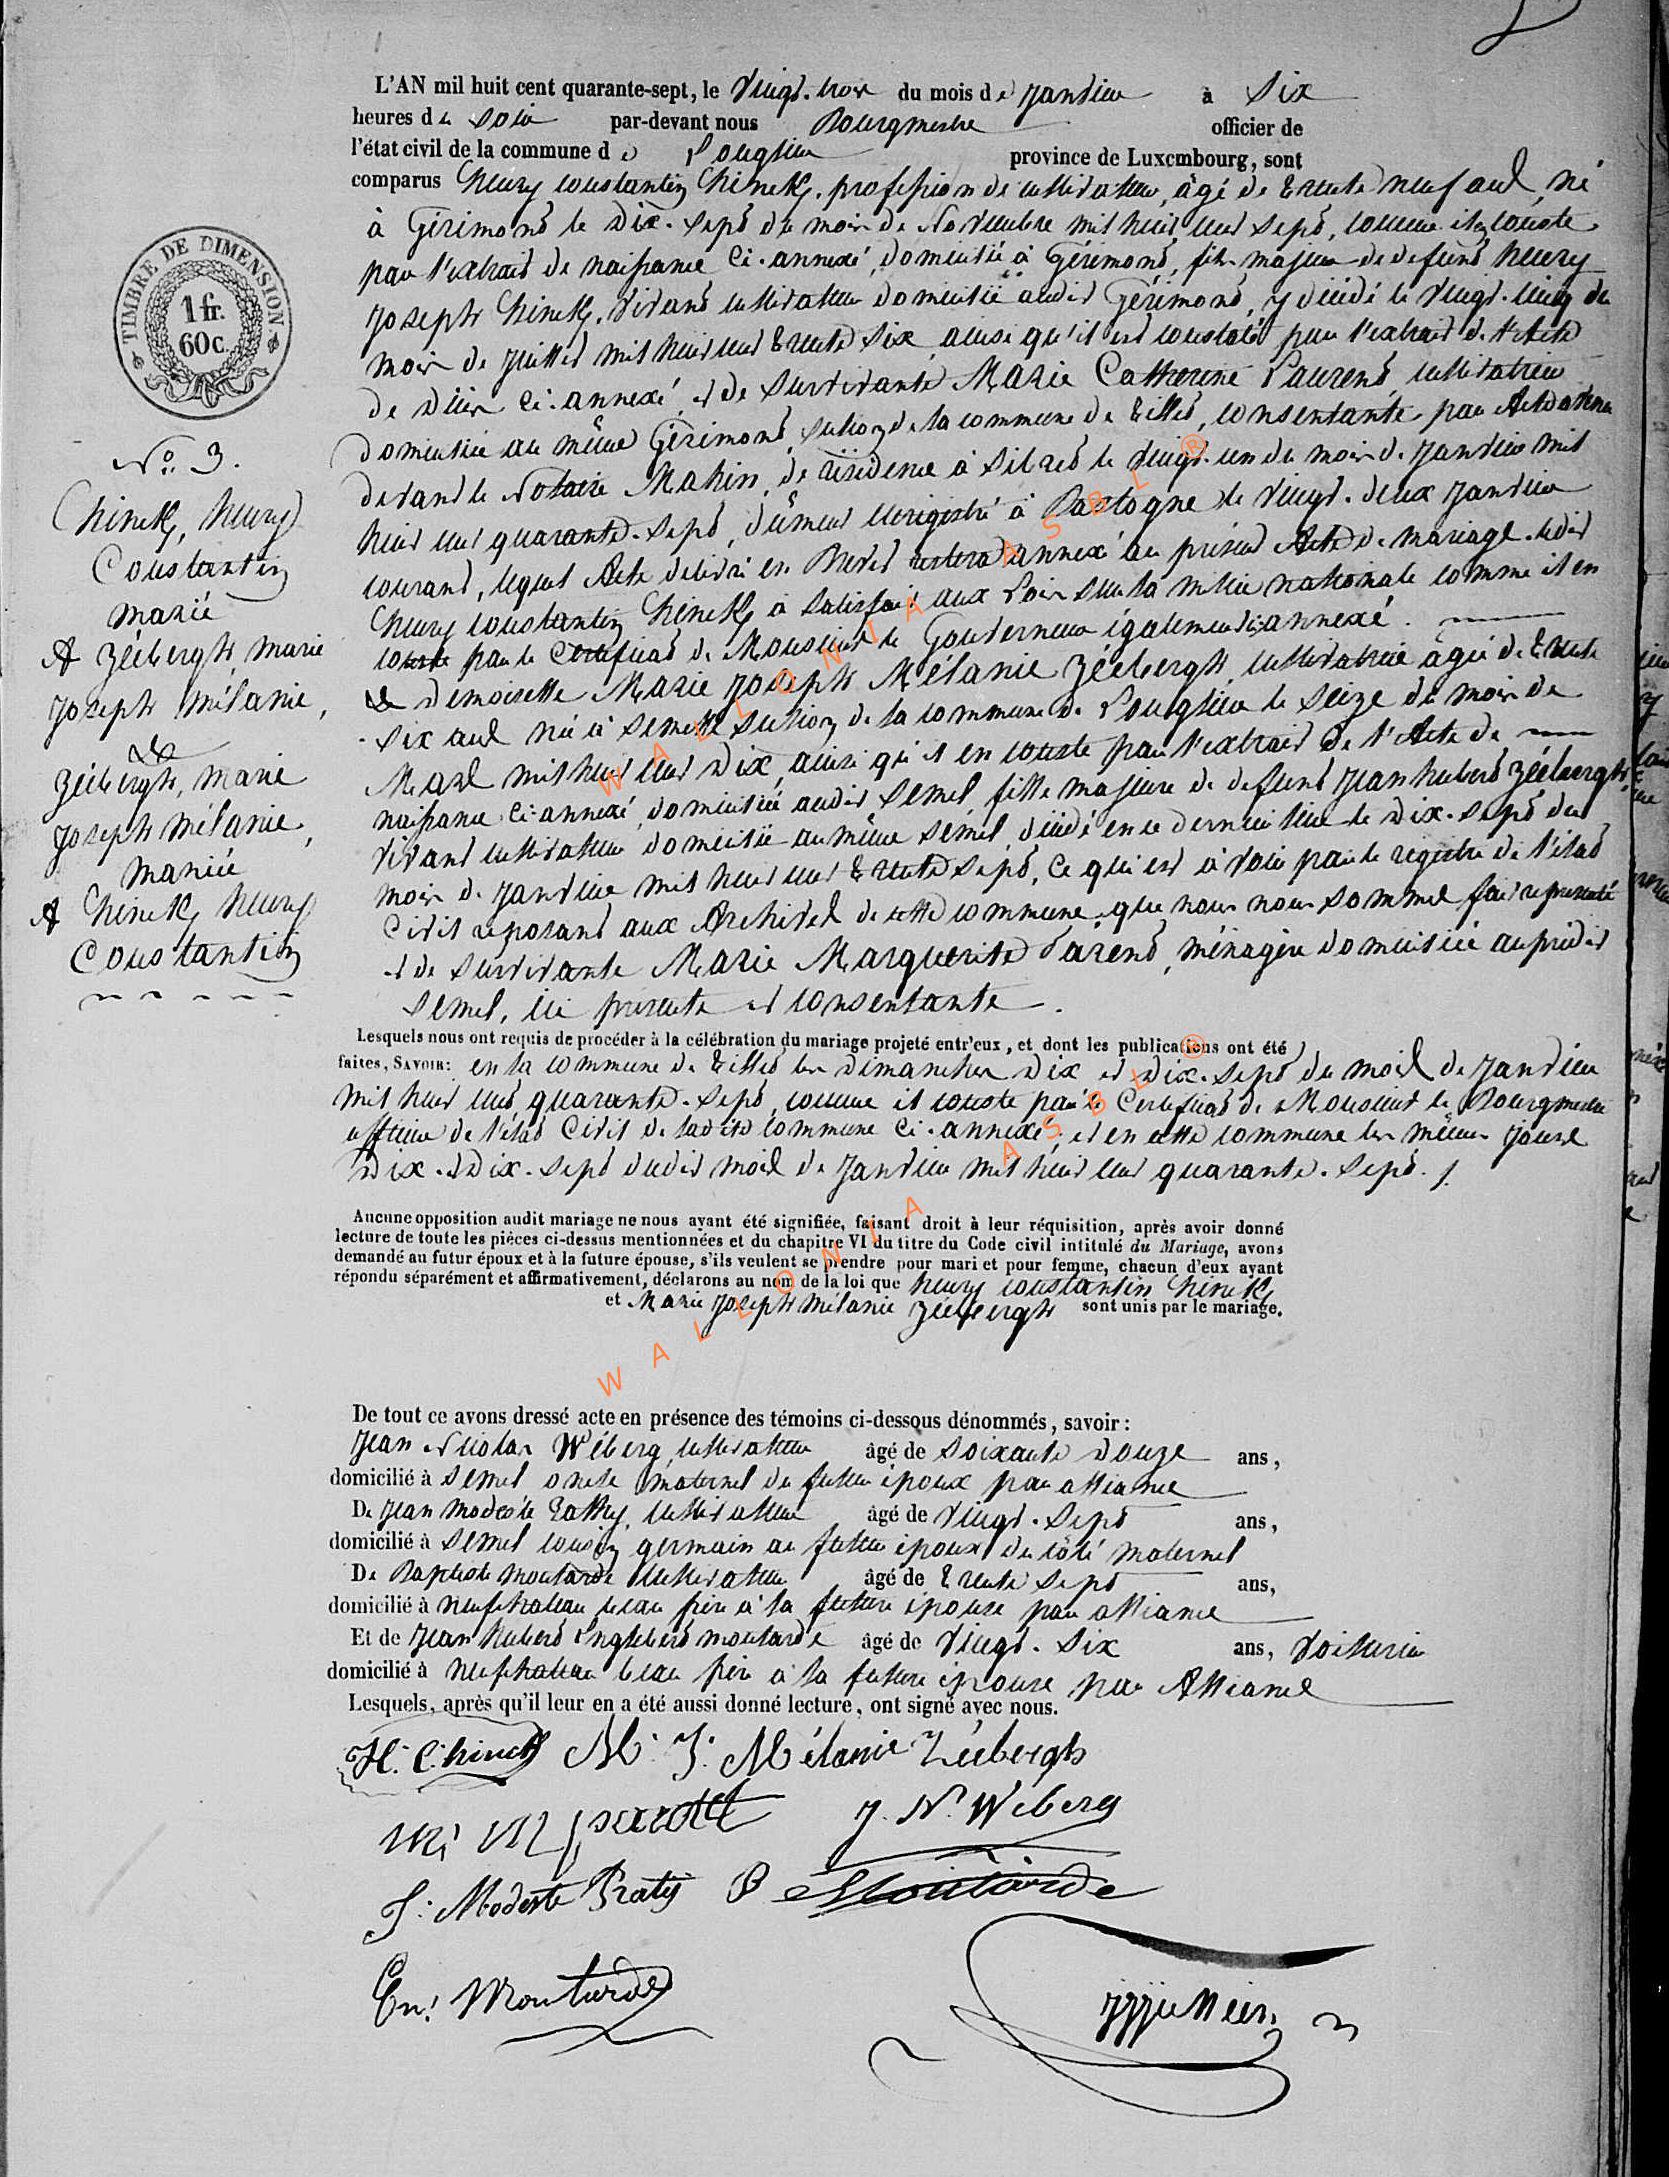 L'AN mil huit cent quarante-sept, le Vingt-trois du mois de Janvier à Six
heures du Soir par-devant nous Bourgmestre officier de
l'état civil de la commune de Longlier province de Luxembourg, sont
comparus henry constantin Chinck, profession de cultivateur, âgé de trente neuf ans, né
à Gérimont le Dix-Sept du mois de Novembre mil huit cent sept, comme il en conste
par l'extrait de naissance ci-annexé, domicilié à Gérimont, fils majeur de defunt henry
Joseph Chinck, vivant cultivateur domicilié audit Gérimont, y décédé le vingt-cinq du
mois de Juillet mil huit cent trente six, ainsi qu'il est constaté par l'extrait de l'Acte
de Décès ci-annexé, et de survivante Marie Catherine Laurent, cultivatrice
domiciliée au même Gérimont, section de la commune de Tillet, consentante par Acte
devant le Notaire Mahin, de résidence à Sibret le vingt-un du mois de Janvier mil
huit cent quarante-sept, dûment enregistré à Bastogne le vingt-deux Janvier
courant, lequel Acte délivré en Brevet restera annexé au présent Acte de mariage, ledit
henry constantin Chinck a satisfait aux Lois sur la milice nationale comme il en
conste par le Certificat de Monsieur le Gouverneur également ci-annexé.
& demoiselle Marie Joseph Mélanie Zéebergh, cultivatrice âgée de trente
-six ans née à Semel section de la commune de Longlier le Seize du mois de
Mars mil huit cent Dix, ainsi qu'il en conste par l'extrait de l'Acte de
naissance ci-annexé, domiciliée audit Semel, fille majeure de defunt Jean hubert Zéebergh,
vivant cultivateur domicilié au même Semel, décédé en ce dernier lieu le Dix-Sept du
mois de Janvier mil huit cent trente sept, ce qui est à voir par le registre de l'état
Civil reposant aux Archives de cette commune que nous nous sommes fait representé
et de survivante Marie Marguerite Parent, ménagère domiciliée au prédit
Semel, ici presente et consentante.
Lesquels nous ont requis de procéder à la célébration du mariage projeté entr'eux, et dont les publications ont été
faites, SAVOIR: en la commune de Tillet les Dimanches Dix et Dix-Sept du mois de Janvier
mil huit cent quarante-sept, comme il conste par le Certificat de Monsieur le Bourgmestre
officier de l'état Civil de ladite commune ci-annexé, et en cette commune les mêmes jours
Dix et Dix-Sept dudit mois de Janvier mil huit cent quarante-sept./.
Aucune opposition audit mariage ne nous ayant été signifiée, faisant droit à leur réquisition, après avoir donné
lecture de toute les pièces ci-dessus mentionnées et du chapitre VI du titre du Code civil intitulé du Mariage, avons
demandé au futur époux et à la future épouse, s'ils veulent se prendre pour mari et pour femme, chacun d'eux ayant
répondu séparément et affirmativement, déclarons au nom de la loi que henry constantin Chinck
et Marie Joseph Mélanie Zéebergh sont unis par le mariage.
De tout ce avons dressé acte en présence des témoins ci-dessous dénommés, savoir:
Jean Nicolas Wéberg, cultivateur âgé de soixante douze ans,
domicilié à Semel oncle maternel du futur époux par alliance
De Jean Modeste cultivateur âgé de vingt-sept ans,
domicilié à Semel cousin germain au futur époux du côté maternel
De Baptiste Moutarde cultivateur âgé de trente sept ans,
domicilié à neufchateau beau frère à la future épouse par alliance
Et de Jean hubert Englebert moutarde âgé de vingt-six ans, voiturier
domicilié à neufchateau beau frère à la future épouse par Alliance
Lesquels, après qu'il leur en a été aussi donné lecture, ont signé avec nous.
H. C. Chinck M. J. Mélanie Zéebergh
J. N. Weberg
J. Modeste B Moutarde
En. Moutarde
TIMBRE DE DIMENSION
1 fr.
60 c.
No. 3.
Chinck, henry
Constantin
marié
A Zéebergh, marie
Joseph Mélanie,
&
Zéebergh, marie
Joseph Mélanie,
mariée
A Chinck henry
Constantin
WALLONIA ASBL ®
WALLONIA ASBL ®